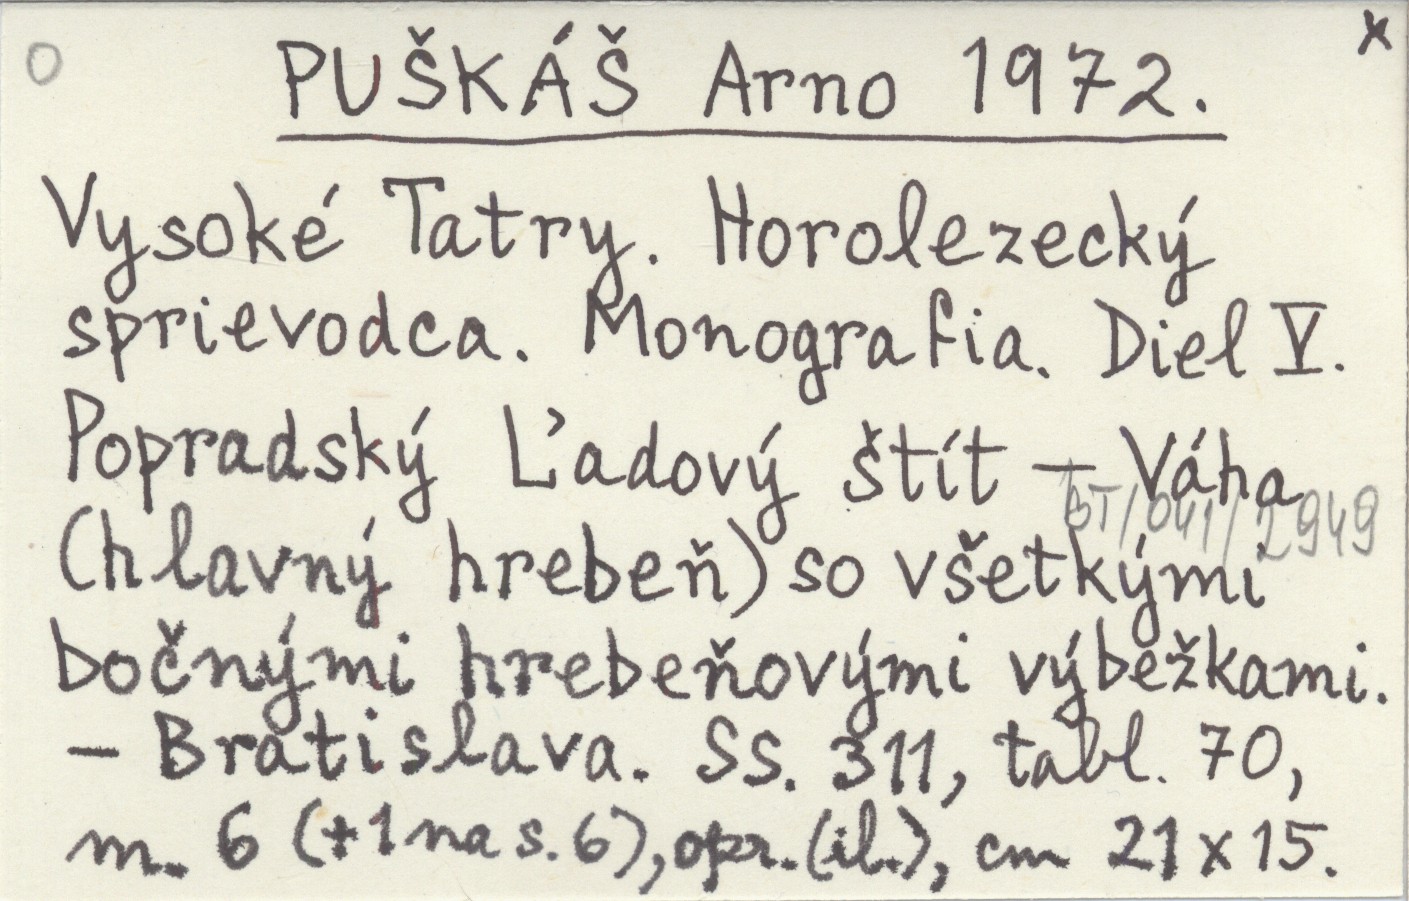 O
x
PUŠKÁŠ Arno 1972.
Vysoké Tatry. Horolezecký
sprievodca. Monografia. Diel V.
Popradský Ľadový štít – Váha
BT/041/2949
(hlavný hrebeň) so všetkými
bočnými hrebeňovými výbežkami.
– Bratislava. Ss. 311, tabl. 70,
m. 6 (+1 na s. 6), opr. (il.), cm 21 x 15.